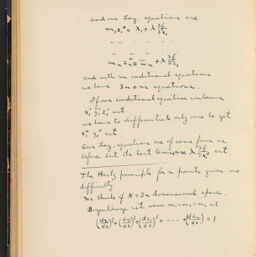 and our Lag. equations are
m₁ẍ₁ = X₁ + λ ∂f/∂x₁
- - -
- - -
mₙ z̈ₙ = Zₙ + λ ∂f/∂zₙ
and with m conditional equations
we have 3n + m equations.
If our conditional equation contains
ẋ₁ ẏ₁ ż₁ etc
we have to differentiate only once to get
ẍ₁ ÿ₁ etc
Our Lag. equations are of same form as
before but the last terms are λ ∂f/∂ẋ₁ etc.
The Hertz principle for n points gives no
difficulty
We think of N = 3n dimensional space.
(dx₁/ds)² + (dx₂/ds)² + (dx₃/ds)² + - - - + ( /ds)² = 1